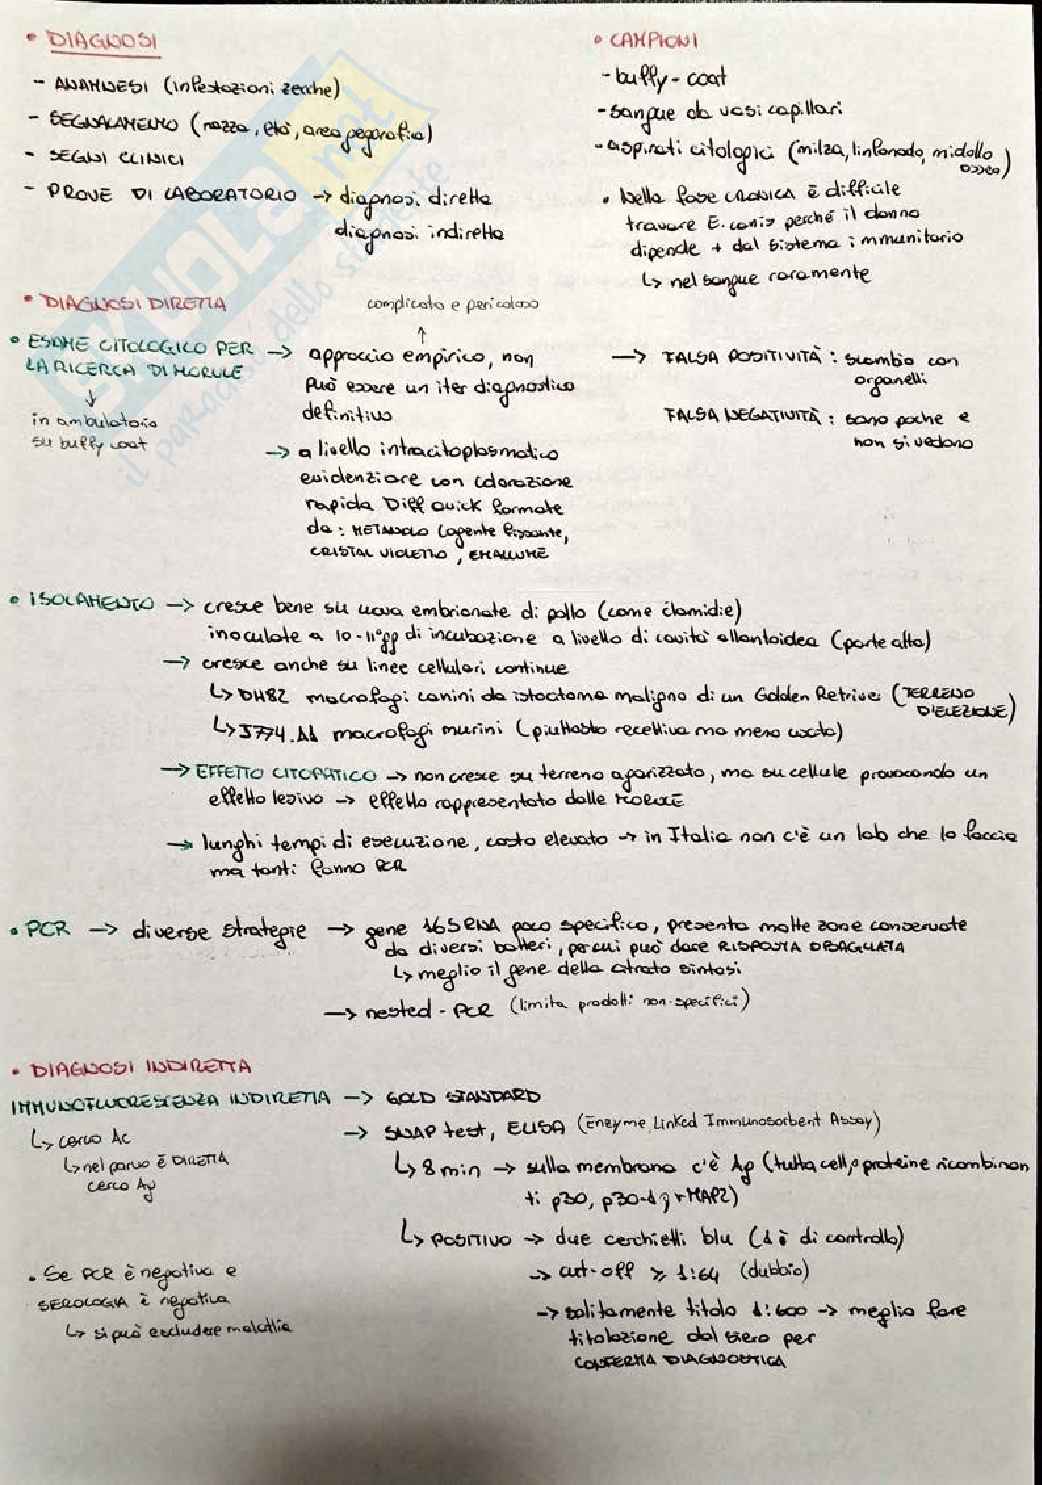 • DIAGNOSI
- ANAMNESI (infestazioni zecche)
- SEGNALAMENTO (razza, età, area geografica)
- SEGNI CLINICI
- PROVE DI LABORATORIO → diagnosi diretta
diagnosi indiretta
• CAMPIONI
- buffy-coat
- sangue da vasi capillari
- aspirati citologici (milza, linfonodo, midollo
osseo)
• Nella fase CRONICA è difficile
trovare E. canis perché il danno
dipende + dal sistema immunitario
↳ nel sangue raramente
• DIAGNOSI DIRETTA
complicato e pericoloso
↑
• ESAME CITOLOGICO PER → approccio empirico, non
LA RICERCA DI MORULE può essere un iter diagnostico
definitivo
↓
in ambulatorio
su buffy coat
→ a livello intracitoplasmatico
evidenziare con colorazione
rapida Diff Quick formate
da: METANOLO (agente fissante,
CRISTAL VIOLETTO, EMALLUME
→ FALSA POSITIVITÀ: scambio con
organelli
FALSA NEGATIVITÀ: sono poche e
non si vedono
• ISOLAMENTO → cresce bene su uova embrionate di pollo (come clamidie)
inoculate a 10-11° gg di incubazione a livello di cavità allantoidea (parte alta)
→ cresce anche su linee cellulari continue
↳ DH82 macrofagi canini da istiocitoma maligno di un Golden Retriver (TERRENO
D'ELEZIONE)
↳ J774.A1 macrofagi murini (piuttosto recettiva ma meno usata)
→ EFFETTO CITOPATICO → non cresce su terreno agarizzato, ma su cellule provocando un
effetto lesivo → effetto rappresentato dalle MORULE
→ lunghi tempi di esecuzione, costo elevato → in Italia non c'è un lab che lo faccia
ma tanti fanno PCR
• PCR → diverse strategie → gene 16S RNA poco specifico, presenta molte zone conservate
da diversi batteri, per cui può dare RISPOSTA SBAGLIATA
↳ meglio il gene della citrato sintasi
→ nested-PCR (limita prodotti non-specifici)
• DIAGNOSI INDIRETTA
IMMUNOFLUORESCENZA INDIRETTA → GOLD STANDARD
↳ cerco Ac
↳ nel parvo è DIRETTA
cerco Ag
→ SNAP test, ELISA (Enzyme Linked Immunosorbent Assay)
↳ 8 min → sulla membrana c'è Ag (tutta cell, o proteine ricombinan
ti p30, p30-1 + MAP2)
↳ POSITIVO → due cerchietti blu (1 è di controllo)
→ cut-off ≥ 1:64 (dubbio)
→ solitamente titolo 1:600 → meglio fare
titolazione dal siero per
CONFERMA DIAGNOSTICA
• Se PCR è negativa e
SEROLOGIA è negativa
↳ si può escludere malattia
SKUOLA.net
il paradiso dello studente